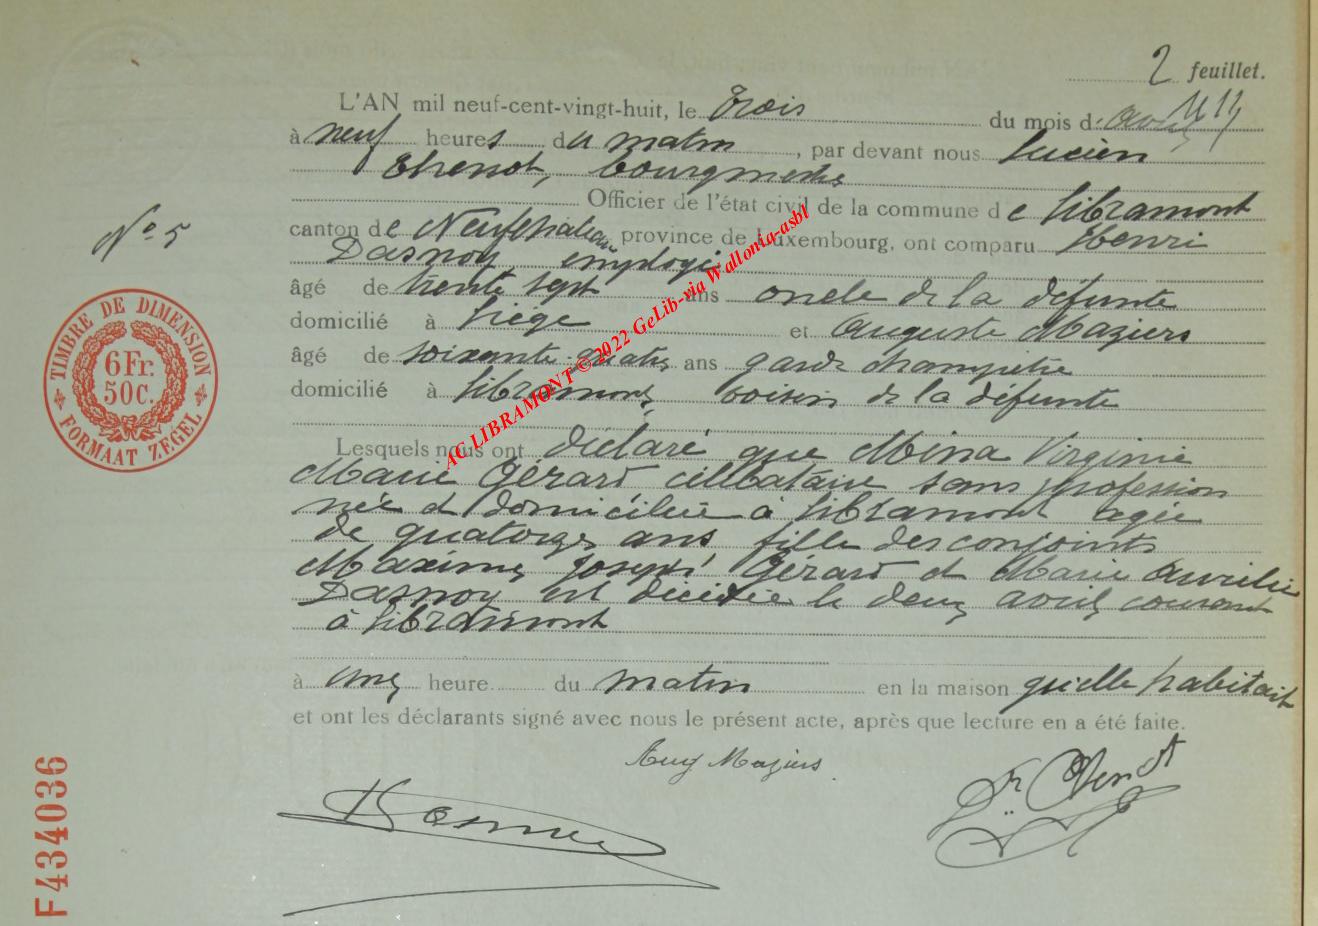 2 feuillet.
L'AN mil neuf-cent-vingt-huit, le trois du mois d'avril
à neuf heures du matin, par devant nous Lucien
bourgmestre
Officier de l'état civil de la commune de Libramont
canton de Neufchateau province de Luxembourg, ont comparu Henri
Dasnoy employé
âgé de trente sept ans oncle de la défunte
domicilié à Liège et Auguste Maziers
âgé de soixante-quatre ans garde champêtre
domicilié à Libramont, voisin de la défunte
Lesquels nous ont déclaré que Mina Virginie
Marie Gérard célibataire sans profession
née et domiciliée à Libramont agée
de quatorze ans fille des conjoints
Maxime Joseph Gérard et Marie Aurelie
Dasnoy est décédée le deux avril courant
à Libramont
à cinq heure du matin en la maison qu'elle habitait
et ont les déclarants signé avec nous le présent acte, après que lecture en a été faite.
Aug Maziers
No 5
TIMBRE DE DIMENSION
6 Fr.
50 C.
FORMAAT ZEGEL
F434036
AC LIBRAMONT ©2022 GeLib-via Wallonia-asbl